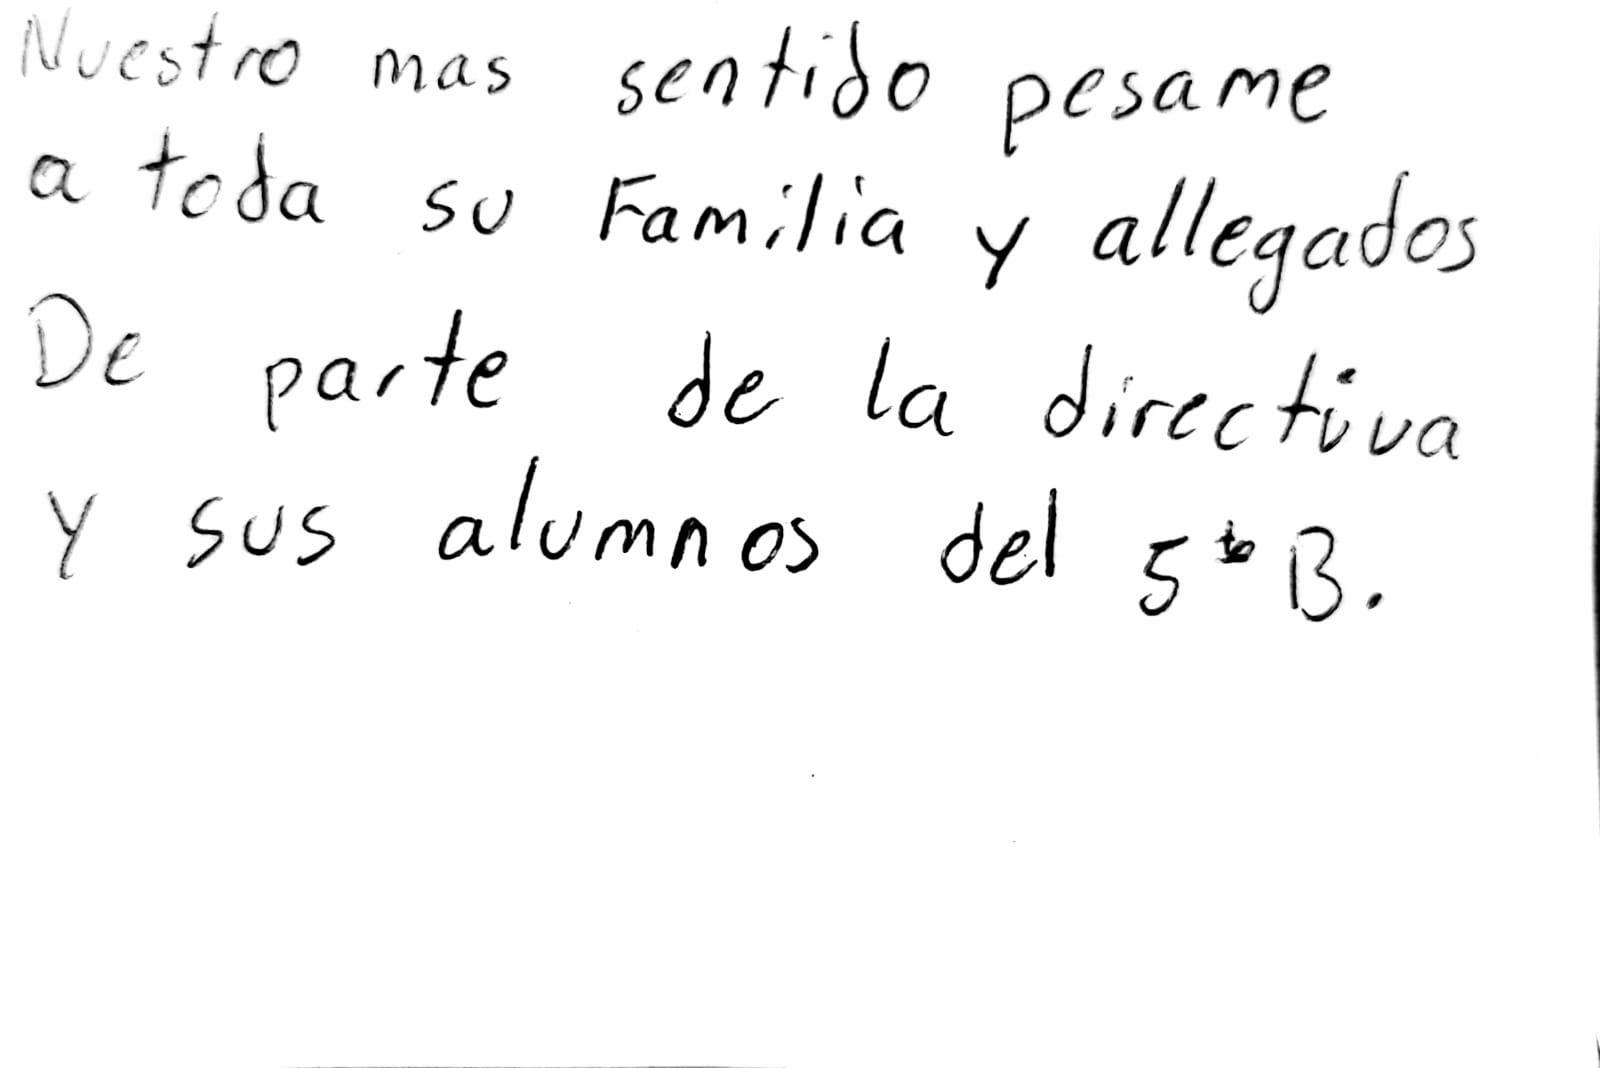 Nuestro mas sentido pesame
a toda su Familia y allegados
De parte de la directiva
y sus alumnos del 5to B.